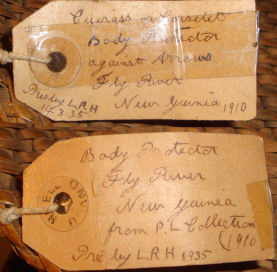 Cuirass or Corselet
Body Protector
against Arrows
Fly River
New Guinea 1910
Pres by L.R.H
14.3.35
Body Protector
Fly River
New Guinea
from P.L Collection
(1910
Pres by L.R H 1935